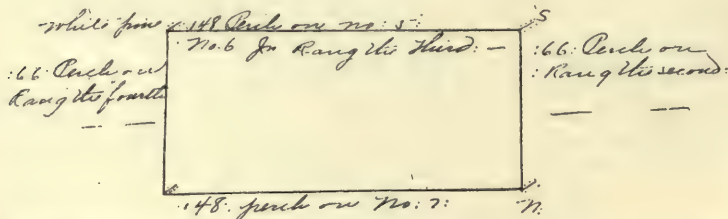 white pine :148 Perch on No: 5: S
No. 6 In Rang the Third: —
:66: Perch on
Rang the fourth
:66: Perch on
: Rang the second:
:148: perch on No: 7: N: